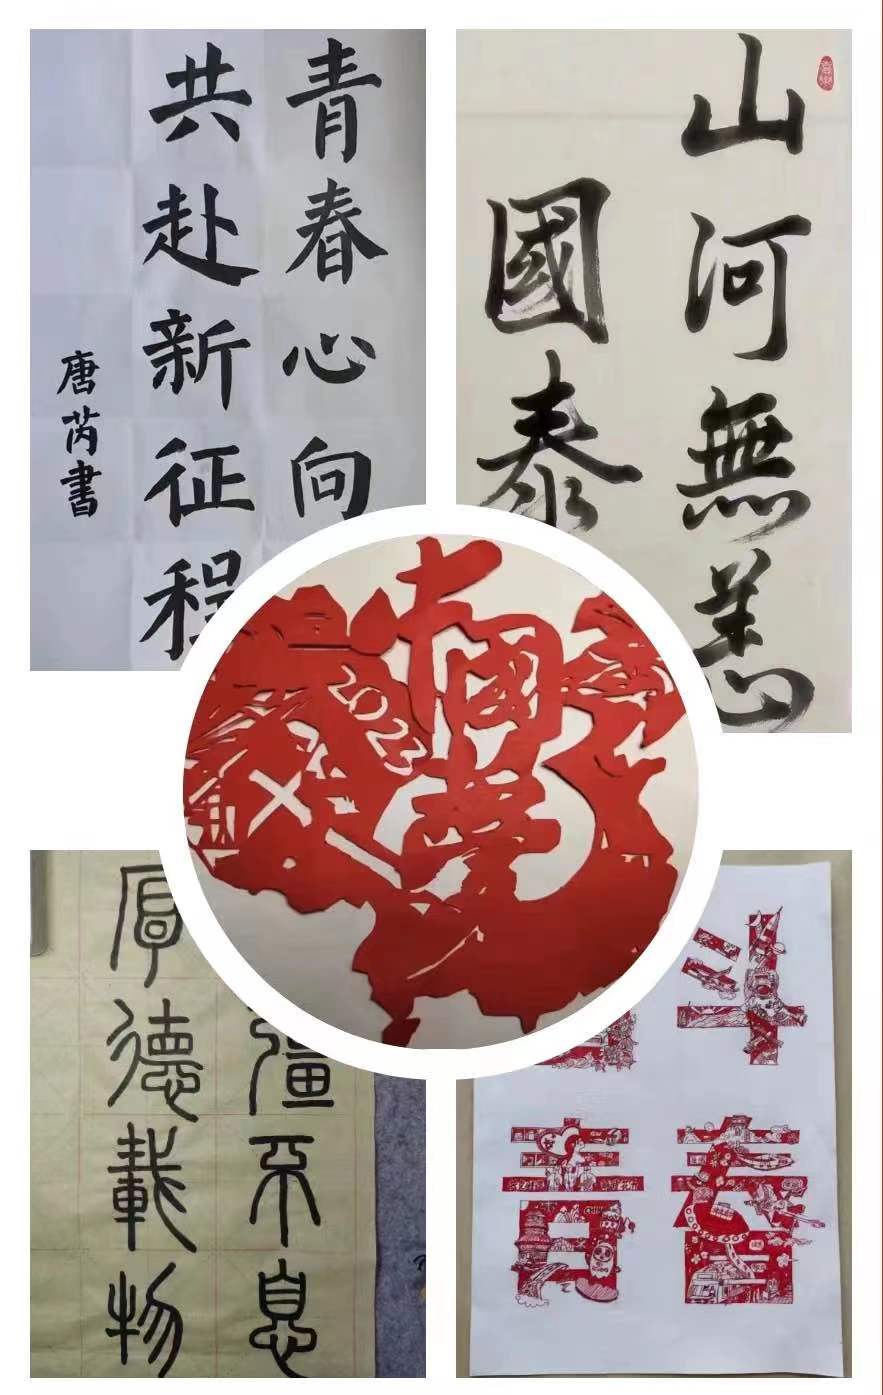 青春心向
共赴新征程
唐芮書
山河無恙
國泰
中國夢
2023
彊不息
厚德載物
斗
青春